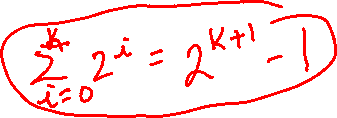 ∑_{i=0}^{k} 2^i = 2^{k+1} - 1